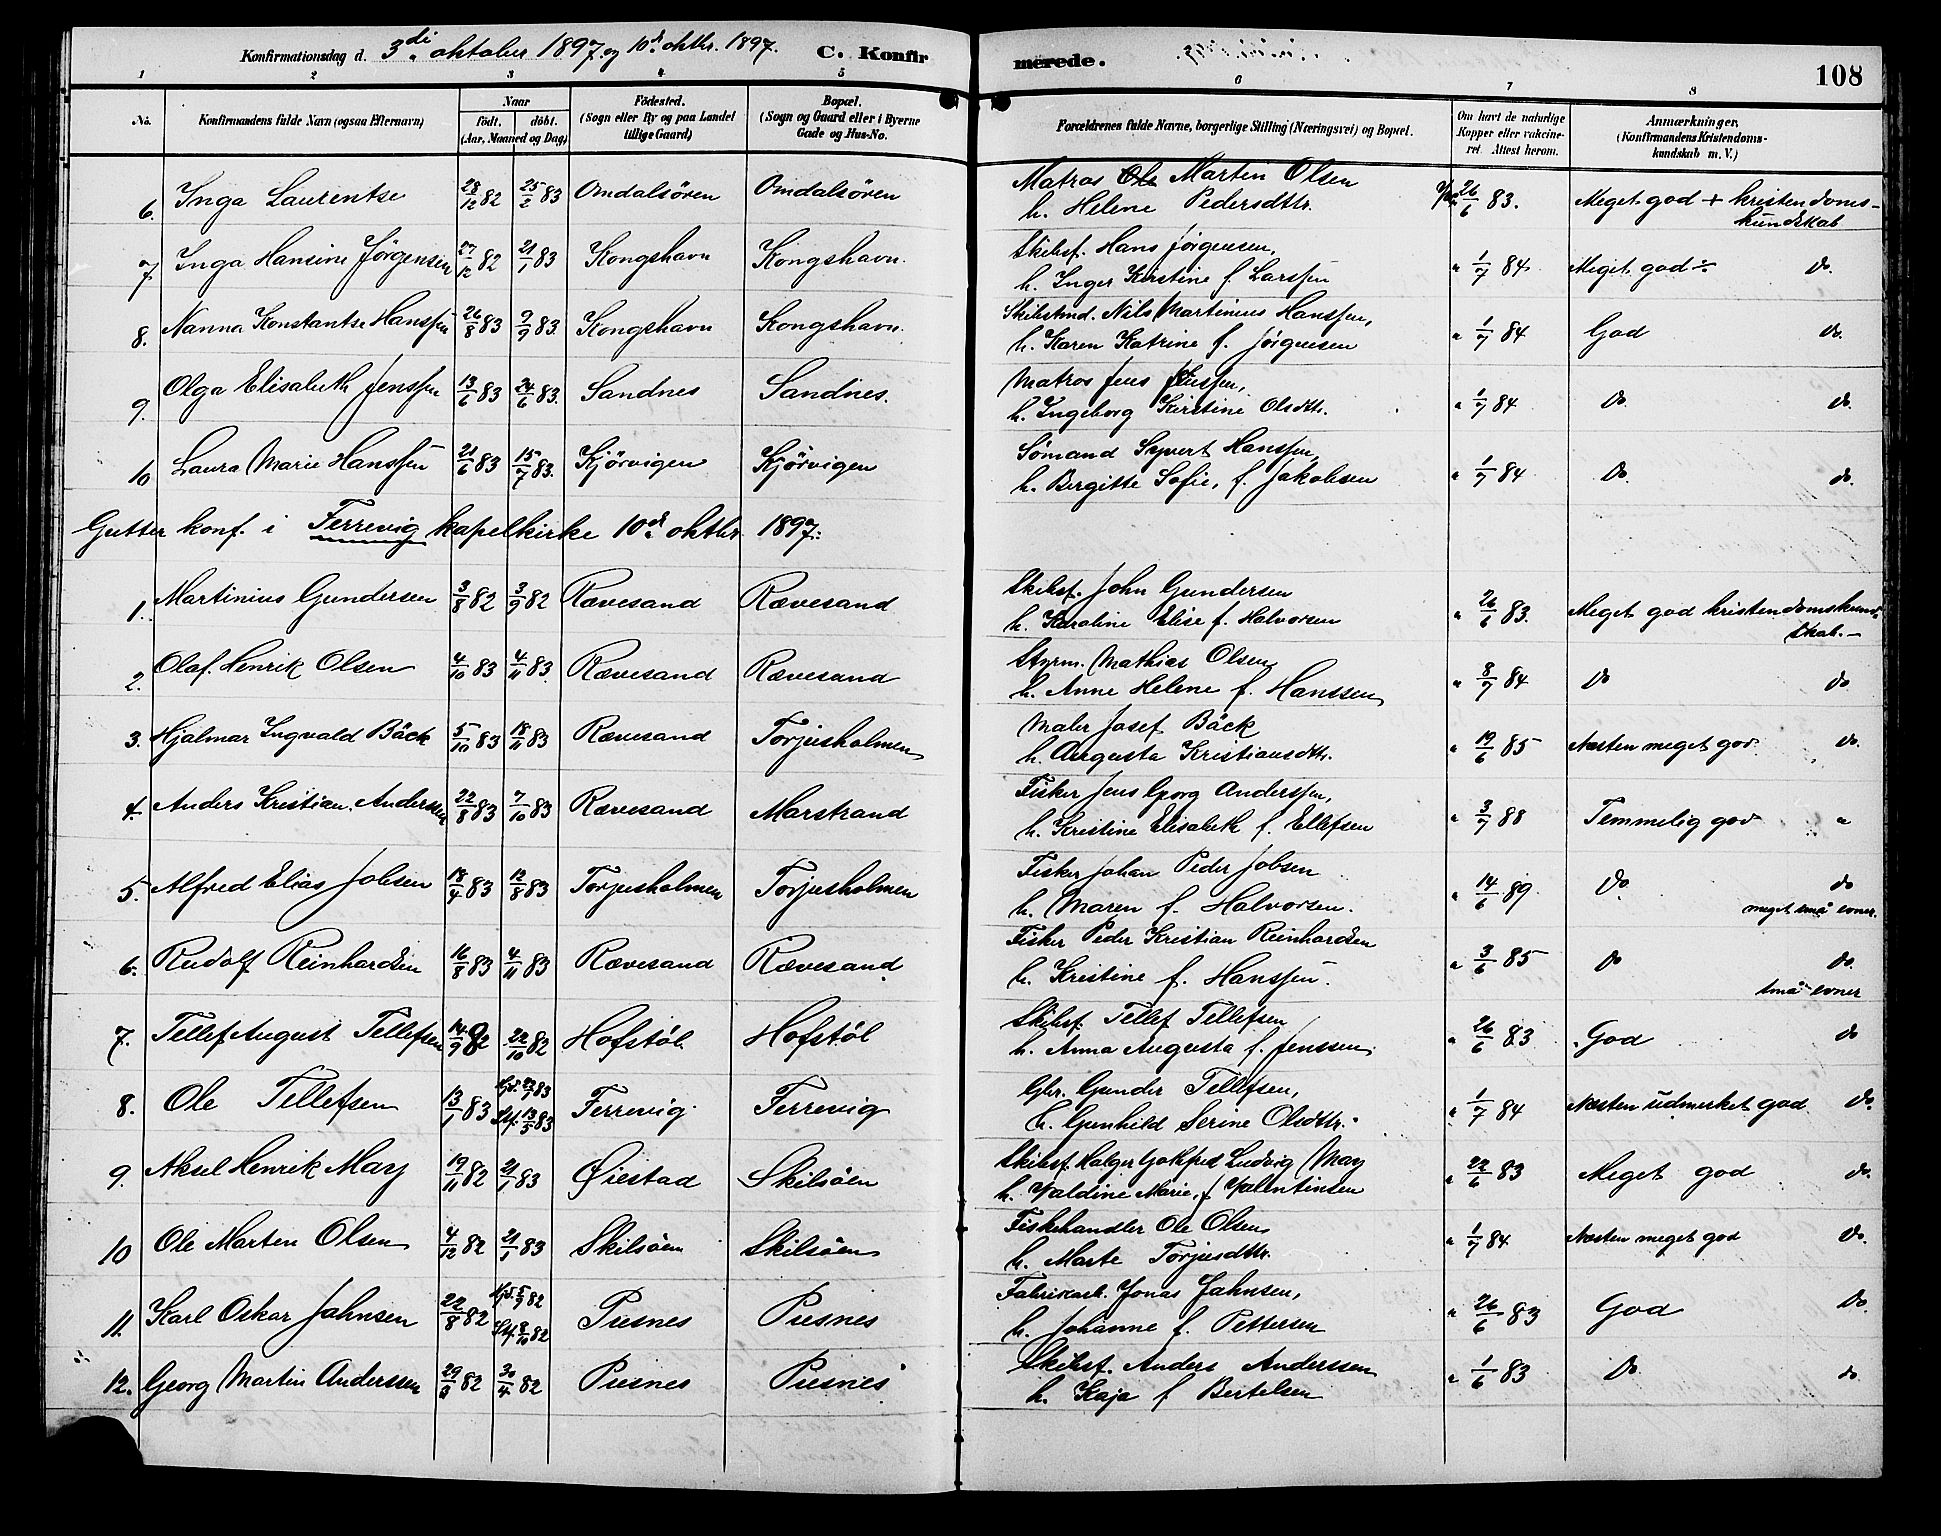 Konfirmationsdag d. 3di oktober 1897 og 10d oktbr. 1897. C. Konfirmerede. 108
1 2 3 4 5 6 7 8
No. Konfirmandens fulde Navn (ogsaa Efternavn) Naar födt. döbt. (Aar, Maaned og Dag) Födested. (Sogn eller By og paa Landet tillige Gaard) Bopæl. (Sogn og Gaard eller i Byerne Gade og Hus-No. Forældrenes fulde Navne, borgerlige Stilling (Næringsvei) og Bopæl. Om havt de naturlige Kopper eller vakcineret. Attest herom. Anmærkninger. (Konfirmandens Kristendomskundskab m. V.)
6. Inga Laurentse 28/12 82 25/2 83 Omdalsören Omdalsören Matros Martin Olsen h. Helene Pedersdttr. 26/6 83. Meget god + kristendomskundskab
7. Inga Hansine Jørgensen 27/12 82 21/1 83 Kongshavn Kongshavn. Skibsf. Hans Jørgensen, h. Inger Kirstine f. Larssen " 1/7 84 Meget god ÷ do.
8. Nanna Konstantse Hanssen 26/8 83 9/9 83. Kongshavn Kongshavn. Skibstmd. Nils Martinius Hanssen, h. Karen Katrine f. Jørgensen " 1/7 84 God do.
9. Olga Elisabeth Jenssen 13/6 83 24/6 83. Sandnes Sandnes. Matros Jens Jenssen, h. Ingeborg Kirstine Olsdttr. " 1/7 84 do. do.
10 Laura Marie Hanssen 21/6 83 15/7 83. Kjörvigen Kjörvigen Sömand Syvert Hanssen, h. Bergitte Sofie, f. Jakobsen " 1/7 84 Do. do.
Gutter konf. i Færevig kapelkirke 10d oktbr. 1897:
1. Martinius Gundersen 3/8 82 3/9 82 Rævesand Rævesand Skibsf. John Gundersen h. Karoline Elise f. Halvorsen " 26/6 83. Meget god kristendomskundskab.—
2. Olaf Henrik Olsen 4/10 83 4/11 83. Rævesand Rævesand Styrm. Mathias Olsen h. Anne Helene f. Hanssen " 8/7 84 Do do
3. Hjalmar Ingvald Bäck 5/10 83 18/11 83 Rævesand Torjusholmen Maler Josef Bäck h. Augusta Kristiansdttr. " 19/6 85 Næsten meget god. do.
4. Anders Kristian Anderssen 22/8 83 7/10 83 Rævesand Marstrand Fisker Jens Georg Anderssen, h. Kristine Elisabeth f. Ellefsen " 3/7 88 Temmelig god "
5. Alfred Elias Jobsen 18/4 83 12/8 83 Torjusholmen Torjusholmen Fisker Johan Peder Jobsen h. Maren f. Halvorsen. " 14/6 89 Do. do meget små evner.
6. Rudolf Reinhardsen 16/8 83 4/11 83 Rævesand Rævesand Fisker Peder Kristian Reinhardsen h. Kristine f. Hanssen. " 3/6 85 do do. små evner
7. Tellef August Tellefsen 14/9 82 22/10 82 Hofstöl Hofstöl Skibsf. Tellef Tellefsen h. Anna Augusta f. Jenssen. " 26/6 83 God do
8. Ole Tellefsen 13/1 83 Hjd. 83 Stf. 13/5 83 Færevig Færevig Gbr. Gunder Tellefsen, h. Gunhild Serine Olsdttr. " 1/7 84 Næsten udmerket god Do.
9. Aksel Henrik May 19/11 82 21/1 83 Øiestad Skilsöen Skibsf. Holger Gotfred Ludvig May h. Valdine Marie, f Valentinsen " 22/6 83 Meget god do.
10 Ole Marten Olsen 4/12 82 21/1 83 Skilsöen Skilsöen Fiskehandler Ole Olsen, h. Marte Torjusdttr. " 1/7 84. Næsten meget god Do.
11. Karl Oskar Jahnsen 22/8 82 Hjd. 5/9 82 Stf. 8/10 82 Pusnes Pusnes Fabrikarb. Jonas Jahnsen, h. Johanne f. Pettersen " 26/6 83 God Do
12. Georg Martin Anderssen 29/3 82 30/4 82 Pusnes Pusnes Skibsf. Anders Anderssen h. Kaja f Bertelsen " 1/6 83 Do do